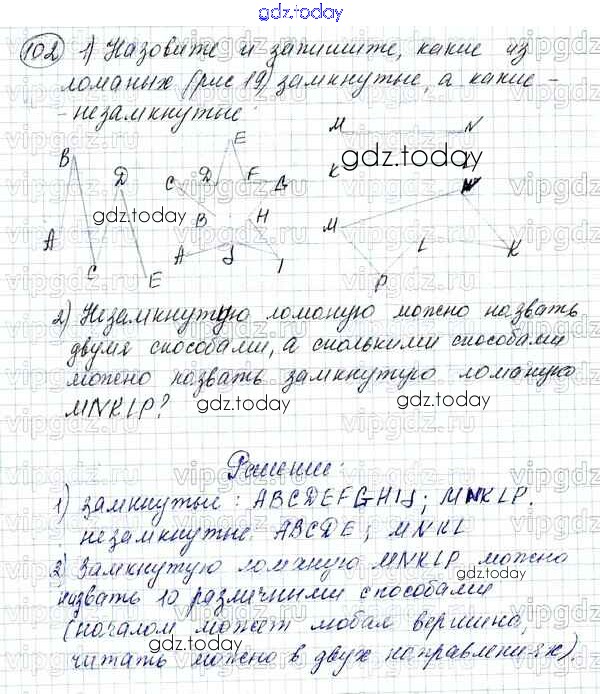 gdz.today
102 1) Назовите и запишите, какие из
ломаных (рис 19) замкнутые, а какие -
- незамкнутые:
B D C D E F G M N
gdz.today
K L
gdz.today
A C E B H A J I M N L K P
2) Незамкнутую ломаную можно назвать
двумя способами, а сколькими способами
можно назвать замкнутую ломаную
MNKLP?
gdz.today
gdz.today
Решение:
1) замкнутые: ABCDEFGHIJ; MNKLP.
незамкнутые: ABCDE; MNKL
2) Замкнутую ломаную MNKLP можно
назвать 10 различными способами
gdz.today
(началом может любая вершина,
читать можно в двух направлениях).